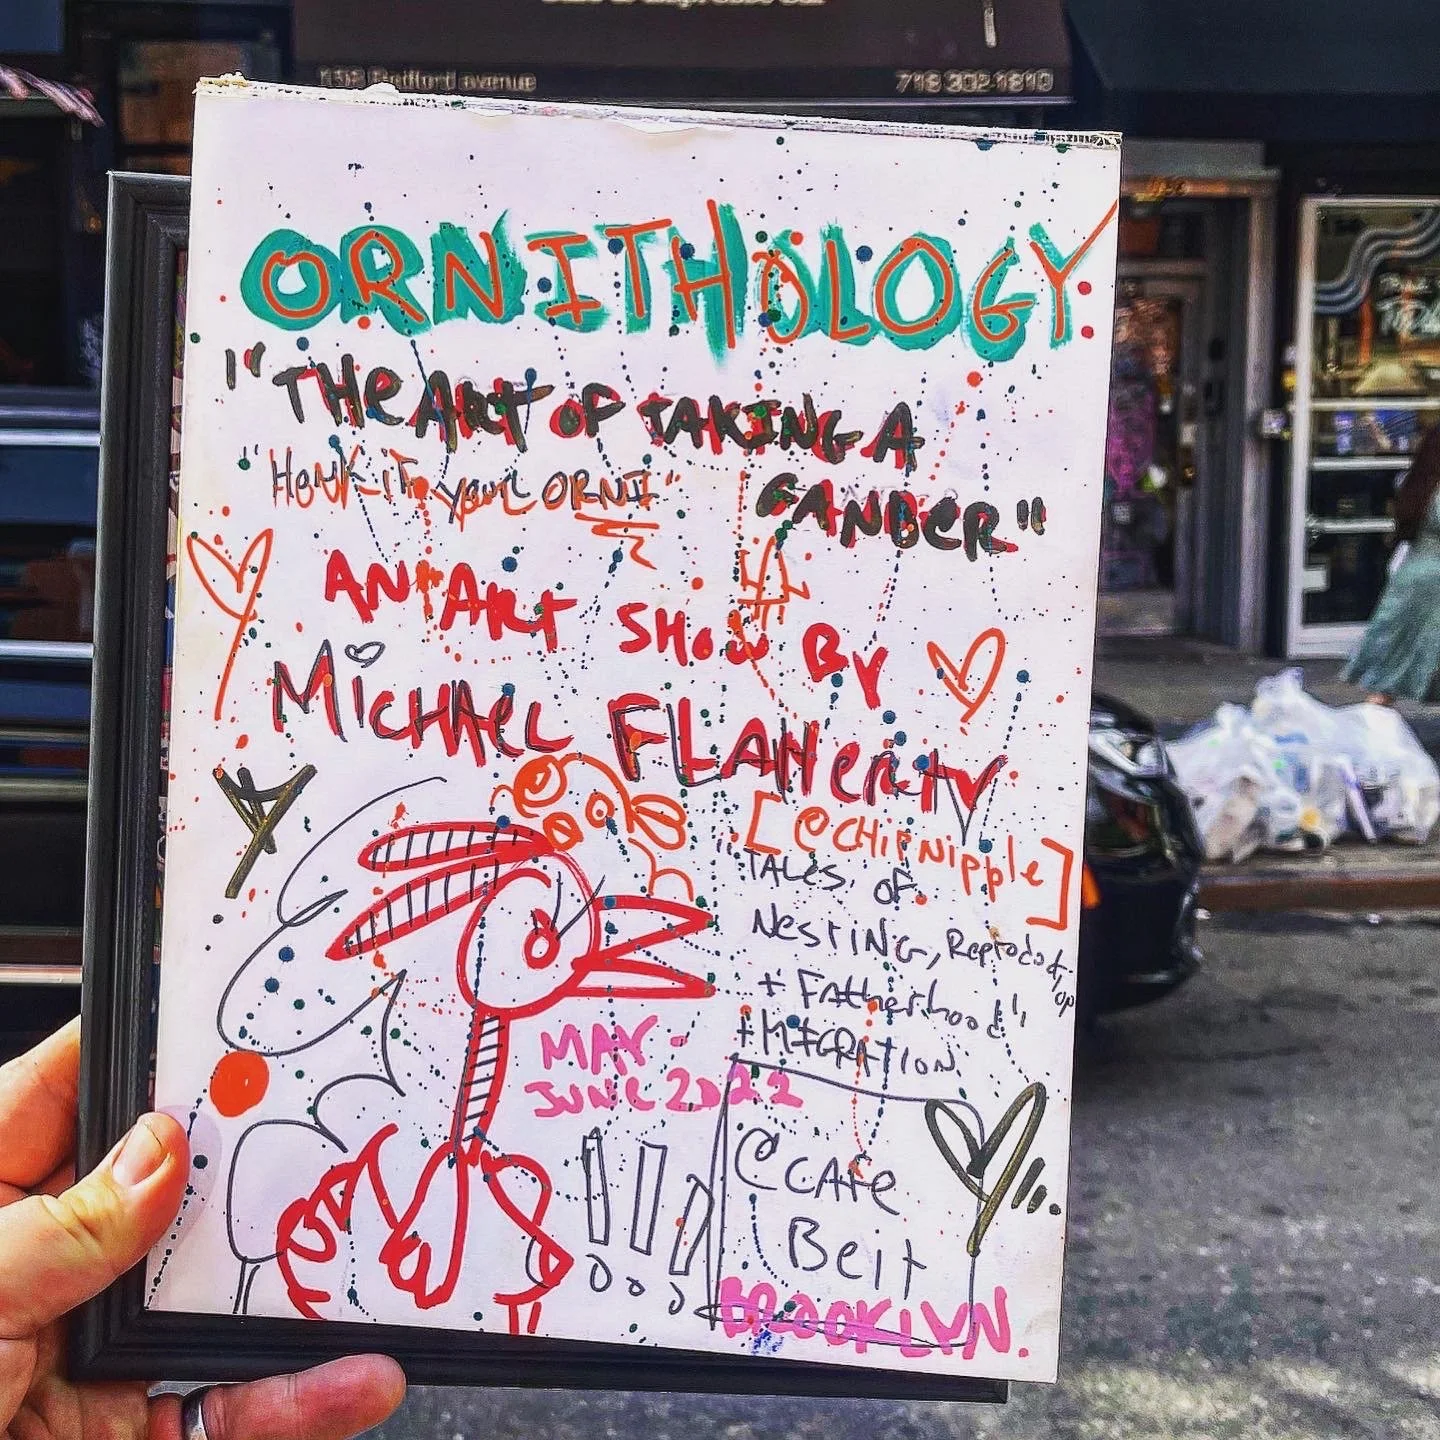 Bedford avenue
718 302-1810
ORNITHOLOGY
"THE ART OF TAKING A
GANDER"
"HONK IF YOU'RE ORNI"
AN ART SHOW BY
MICHAEL FLAHERTY
[@CHIPNIPPLE]
"TALES OF
NESTING, Reproduction
+ Fatherhood"
+ MIGRATION.
MAY -
JUNE 2022
!!!
@ CAFE
Beit
BROOKLYN.